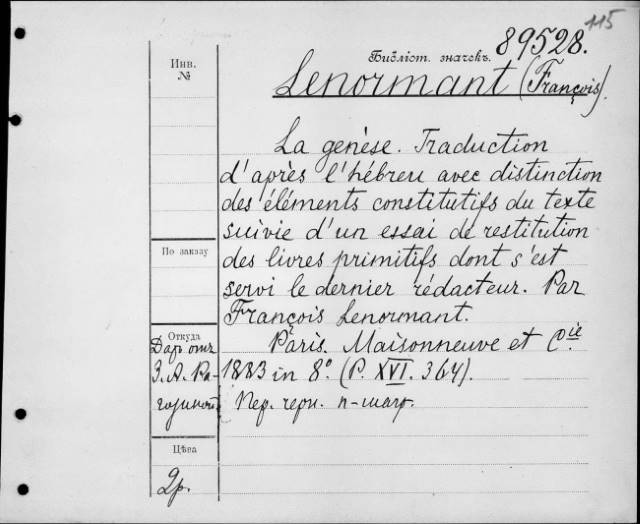 115
Библіот. значекъ. 89528.
Инв. №
Lenormant (François).
La genèse. Traduction
d'après l'hébreu avec distinction
des éléments constitutifs du texte
suivie d'un essai de restitution
По заказу
des livres primitifs dont s'est
servi le dernier rédacteur. Par
François Lenormant.
Откуда
Даръ отъ
З. А. Ра-
гозиной
Paris. Maisonneuve et C.ie
1883 in 8º. (P. XVI. 364).
Пер. черн.
Цѣна
2р.